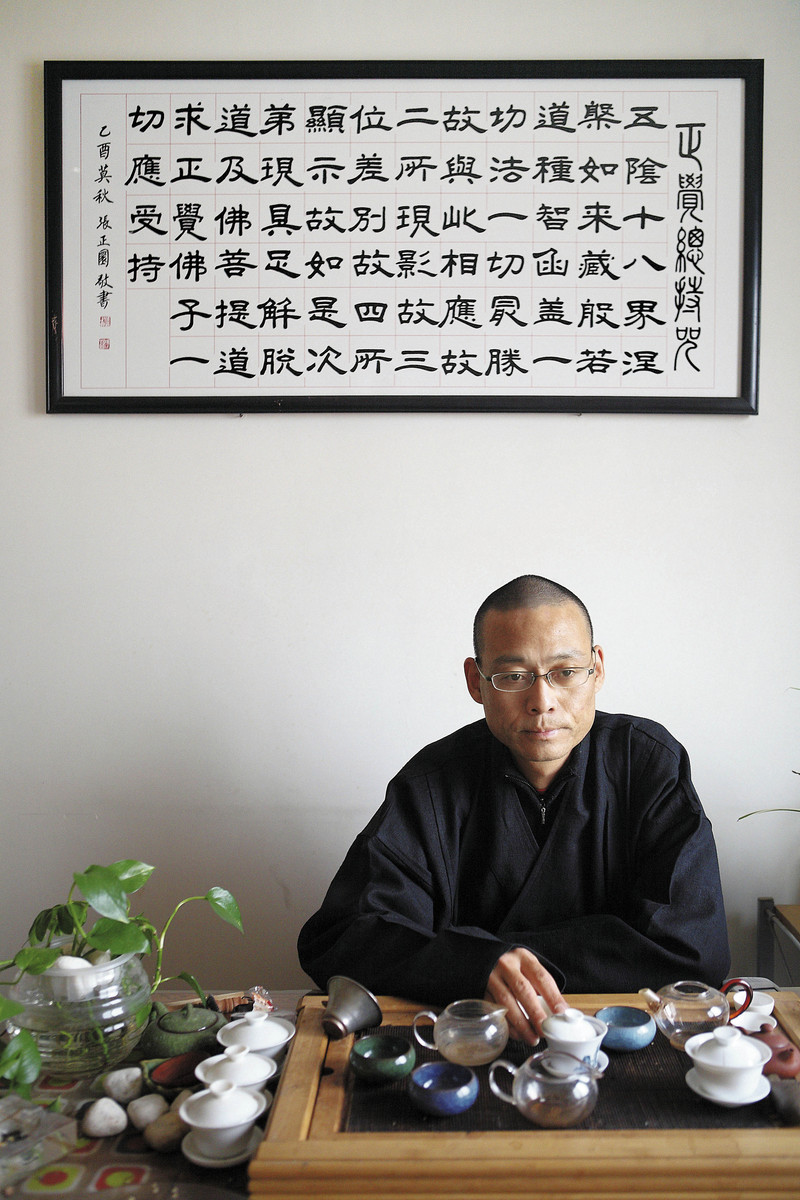 正覺總持咒
五陰十八界涅
槃如来藏般若
道種智函盖一
切法一切冣勝
故與此相應故
二所現影故三
位差別故四所
顯示故如是次
弟現具足解脫
道及佛菩提道
求正覺佛子一
切應受持
乙酉莫秋 張正圜敬書